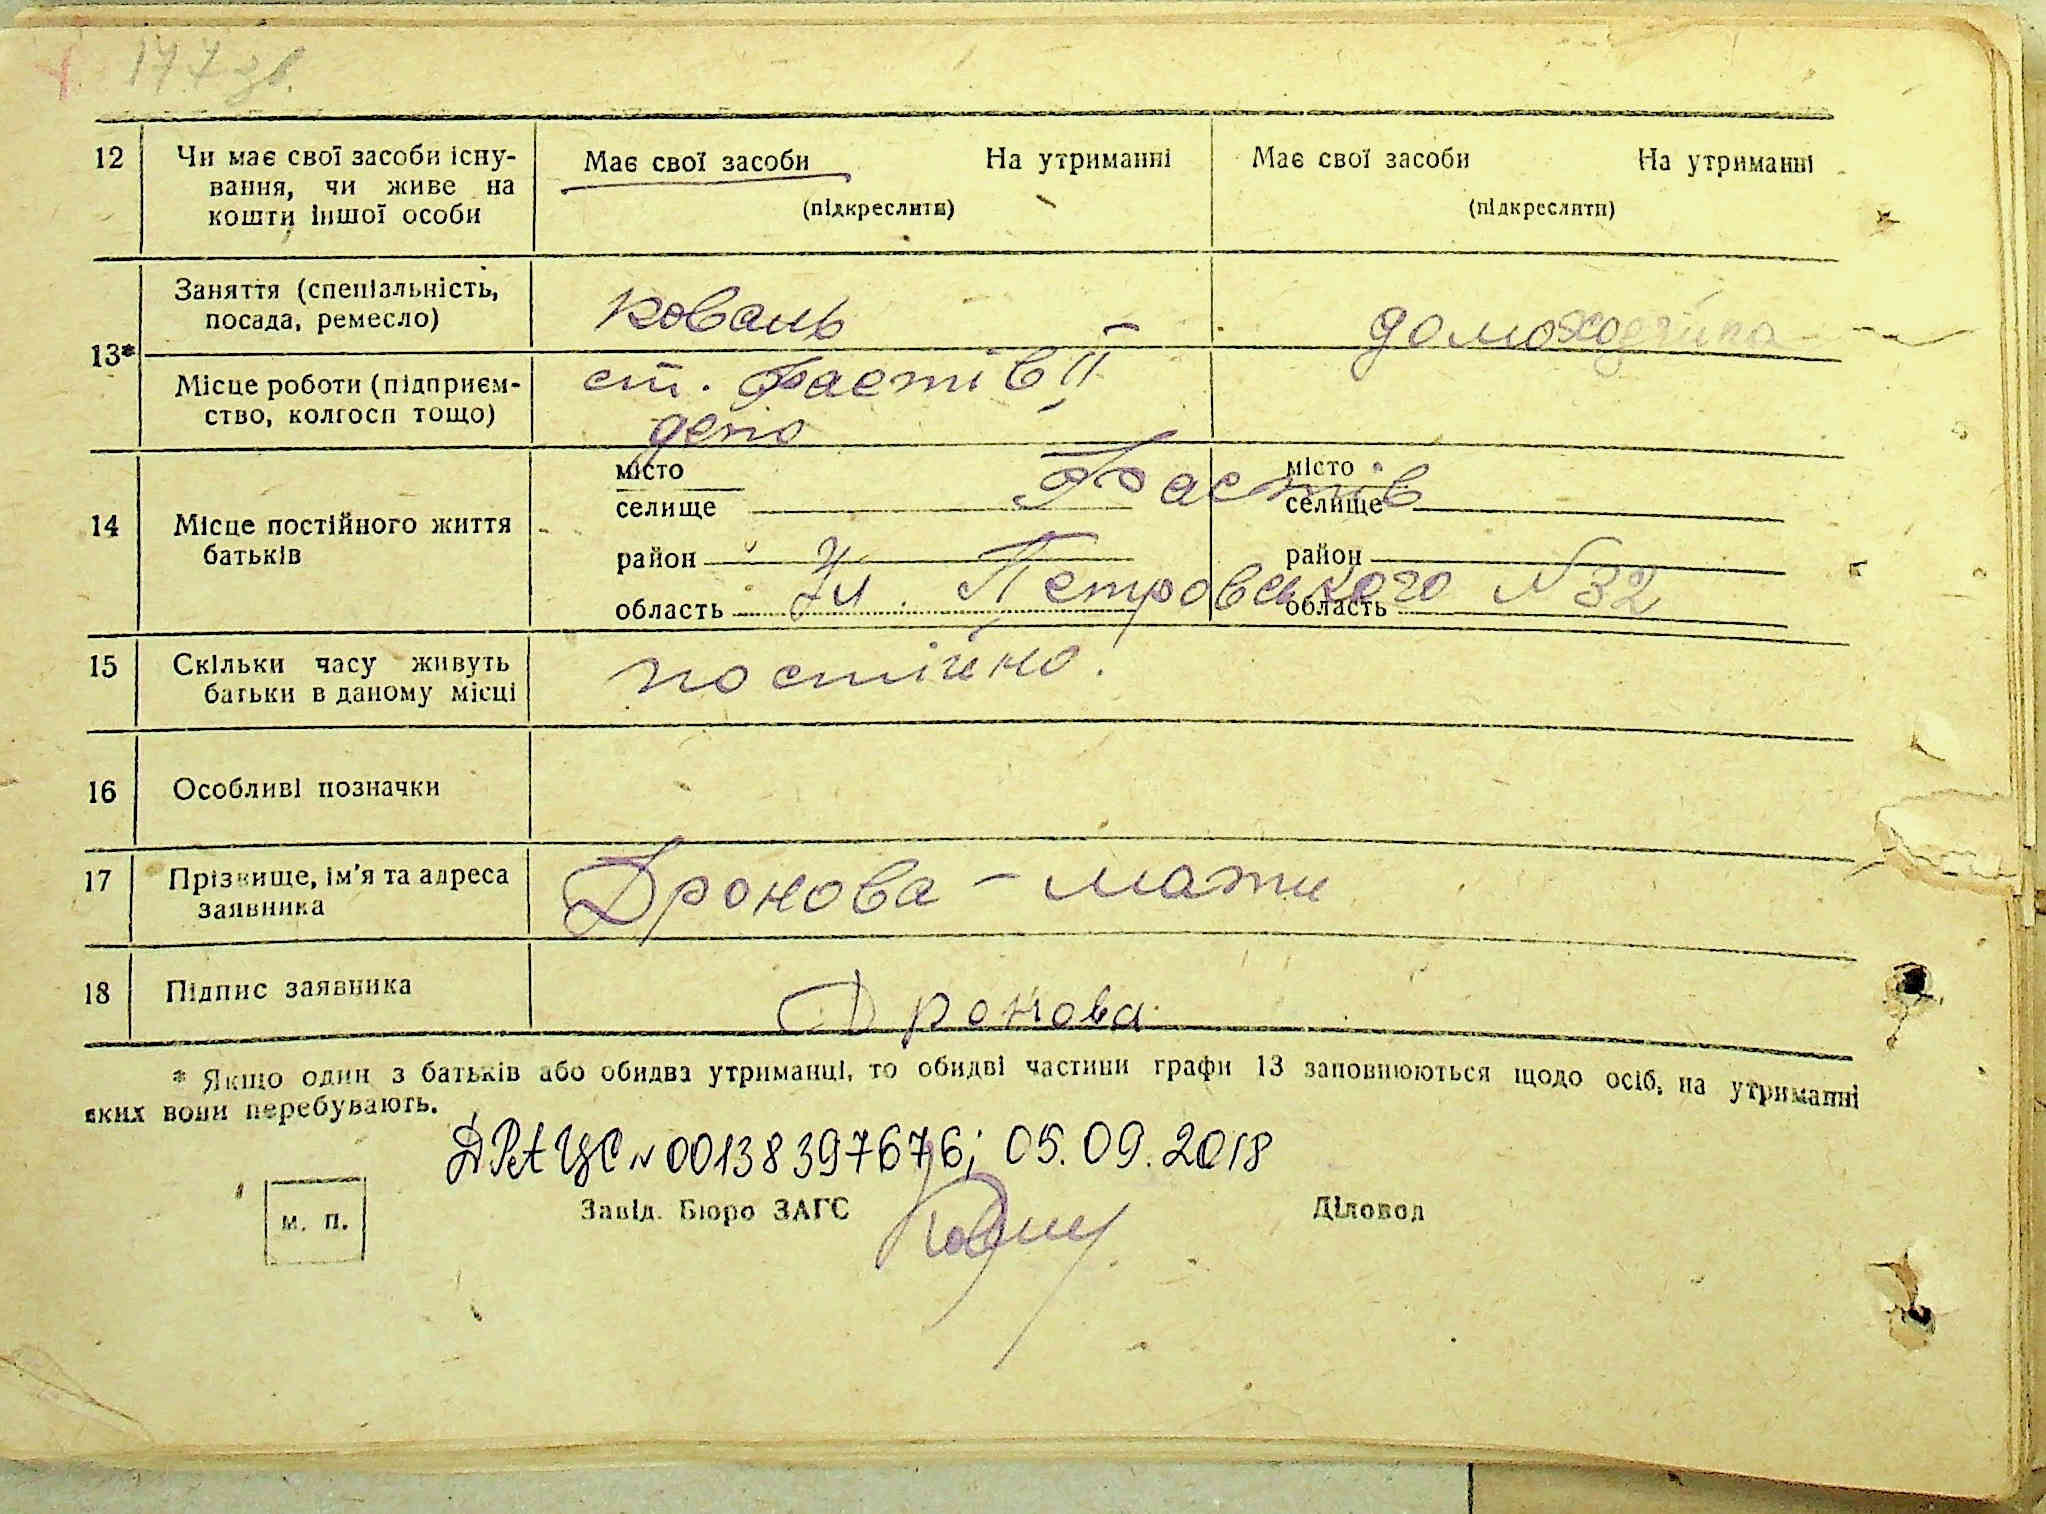 177 зв.
12 Чи має свої засоби існу- Має свої засоби На утриманні Має свої засоби На утриманні
вання, чи живе на (підкреслити) (підкреслити)
кошти іншої особи
13* Заняття (спеціальність, коваль домохозяйка
посада, ремесло)
Місце роботи (підприєм- ст. Фастів II
ство, колгосп тощо) депо
14 Місце постійного життя батьків
місто Фастів місто
селище селище
район район
область Ул. Петровського №32 область
15 Скільки часу живуть постійно.
батьки в даному місці
16 Особливі позначки
17 Прізвище, ім'я та адреса Дронова – мати
заявника
18 Підпис заявника Дронова
* Якщо один з батьків або обидва утриманці, то обидві частини графи 13 заповнюються щодо осіб, на утриманні
яких вони перебувають.
ДРАЦС № 00138397676; 05.09.2018
м. п. Завід. Бюро ЗАГС Діловод